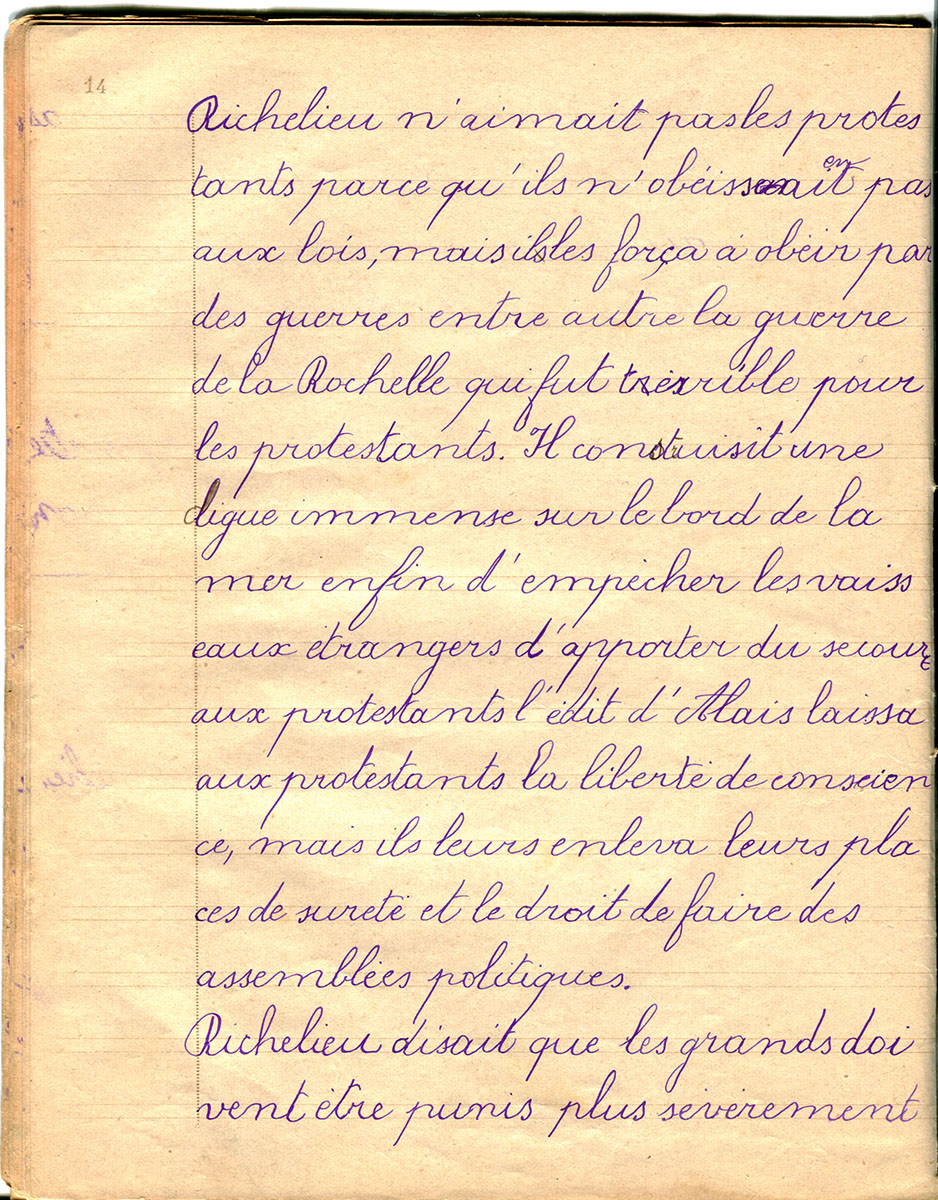 14
Richelieu n'aimait pas les protes
tants parce qu'ils n'obéissaient pas
aux lois, mais ils les força à obéir par
des guerres entre autre la guerre
de la Rochelle qui fut terrible pour
les protestants. Il construisit une
digue immense sur le bord de la
mer enfin d'empêcher les vaiss
eaux étrangers d'apporter du secours
aux protestants l'édit d'Alais laissa
aux protestants la liberté de conscien
ce, mais ils leurs enleva leurs pla
ces de sureté et le droit de faire des
assemblées politiques.
Richelieu disait que les grands doi
vent être punis plus sévèrement